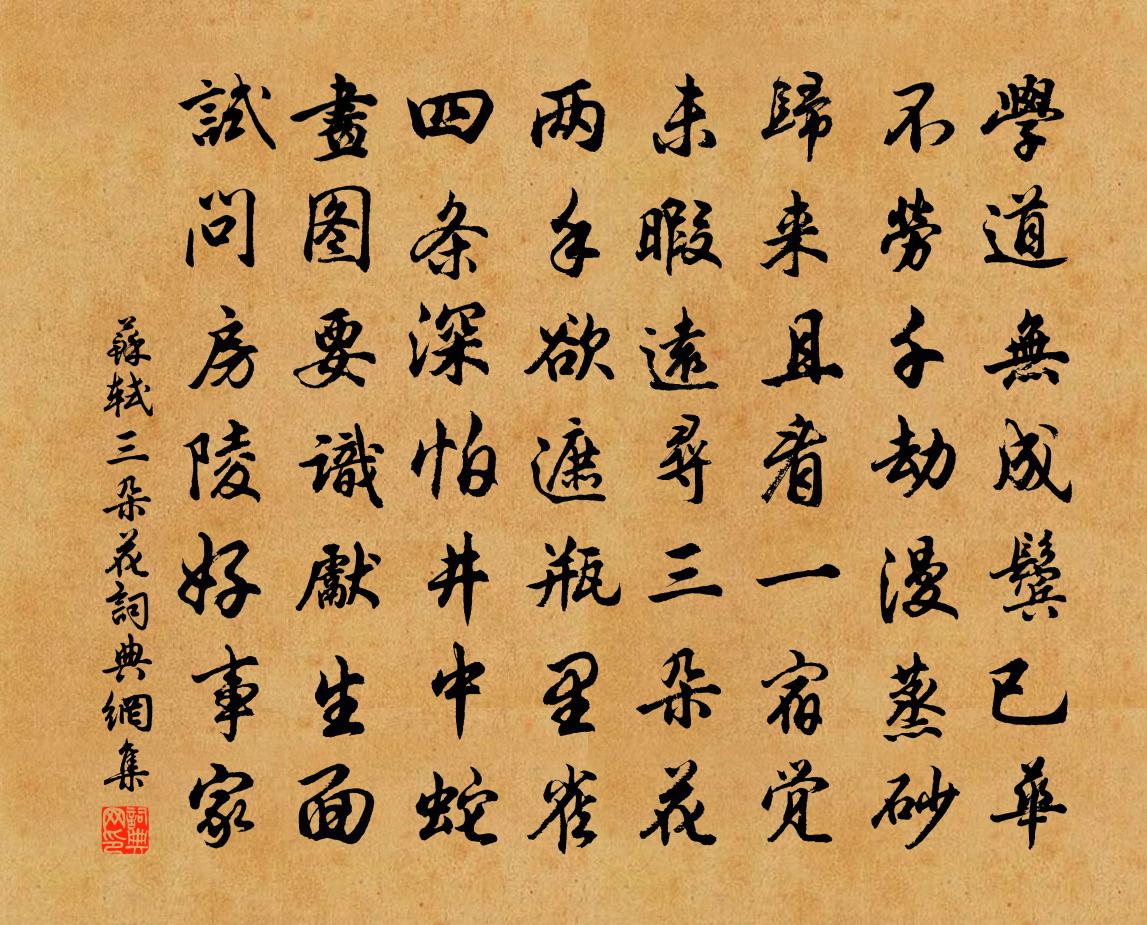 學道無成鬢已華
不勞千劫漫蒸砂
歸来且看一宿覚
未暇遠尋三朵花
两手欲遮瓶里雀
四条深怕井中蛇
畫图要識獻生面
試問房陵好事家
蘇軾三朵花詞典網集
詞典网印